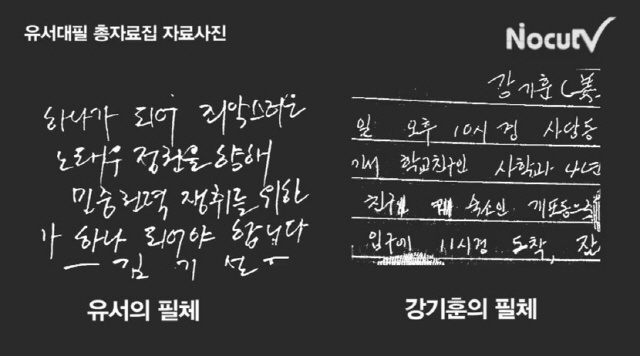 유서대필 총자료집 자료사진
NocuTV
하나가 되어 죄악스러운
노태우 정권을 향해
민중권력 쟁취를 위한
가 하나 되어야 합니다
김 기 설
강기훈
일 오후 10시경 사당동
서 학교친구인 사학과 4년
친구 숙소인 개포동
입구에 11시경 도착, 잠
유서의 필체
강기훈의 필체